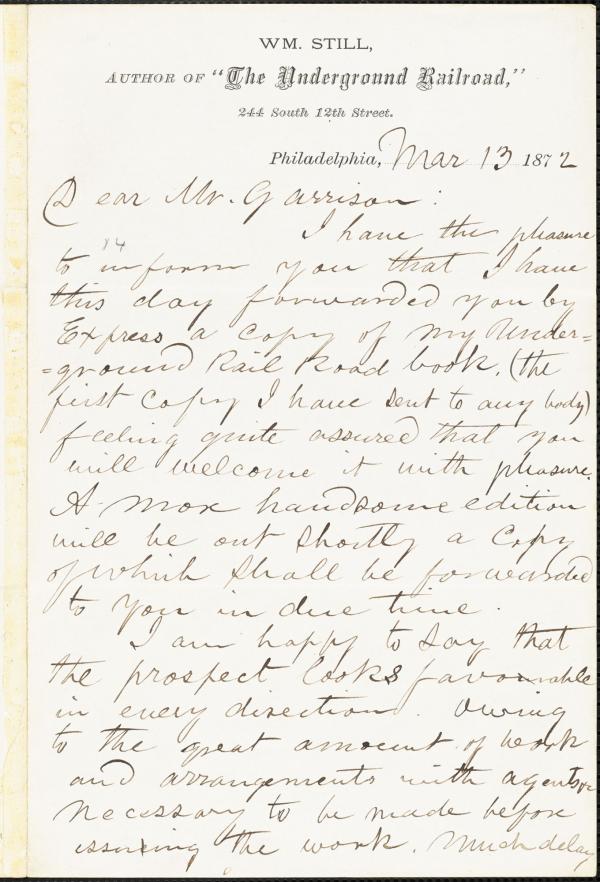 WM. STILL,
AUTHOR OF "The Underground Railroad,"
244 South 12th Street.
Philadelphia, Mar 13 1872
Dear Mr. Garrison:
I have the pleasure
84
to inform you that I have
this day forwarded you by
Express a copy of my Under=
=ground Rail Road book, (the
first Copy I have sent to any body)
feeling quite assured that you
will welcome it with pleasure.
A more handsome edition
will be out shortly a Copy
of which shall be forwarded
to you in due time.
I am happy to say that
the prospect looks favourable
in every direction. Owing
to the great amount of work
and arrangements with agents
necessary to be made before
issuing the work. Much delay